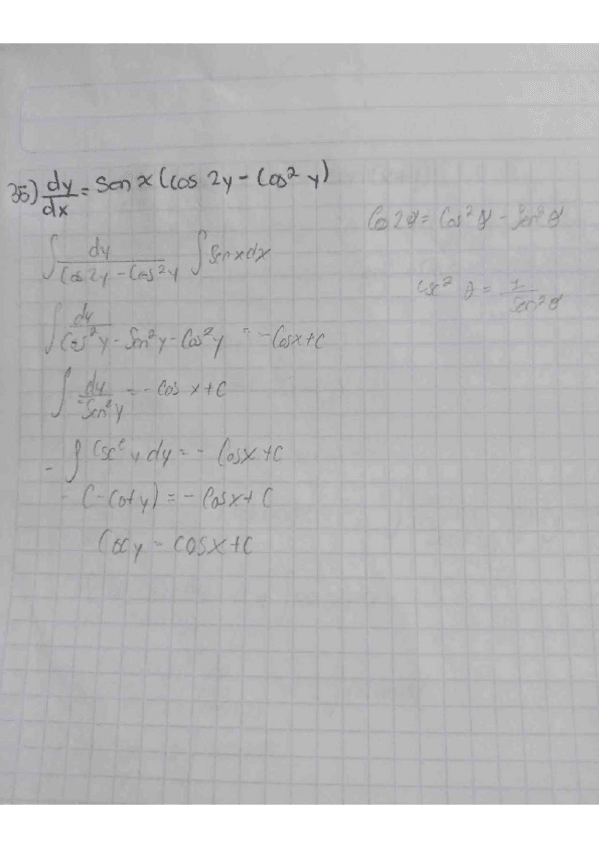 35) dy/dx = Sen x (Cos 2y - Cos² y)
Cos 2θ = Cos² θ - Sen² θ
∫ dy/(Cos 2y - Cos² y) ∫ Sen x dx
Csc² θ = 1/Sen² θ
∫ dy/(Cos² y - Sen² y - Cos² y) = - Cos x + C
∫ dy/-Sen² y = - Cos x + C
- ∫ Csc² y dy = - Cos x + C
- (- Cot y) = - Cos x + C
y = cos x + C